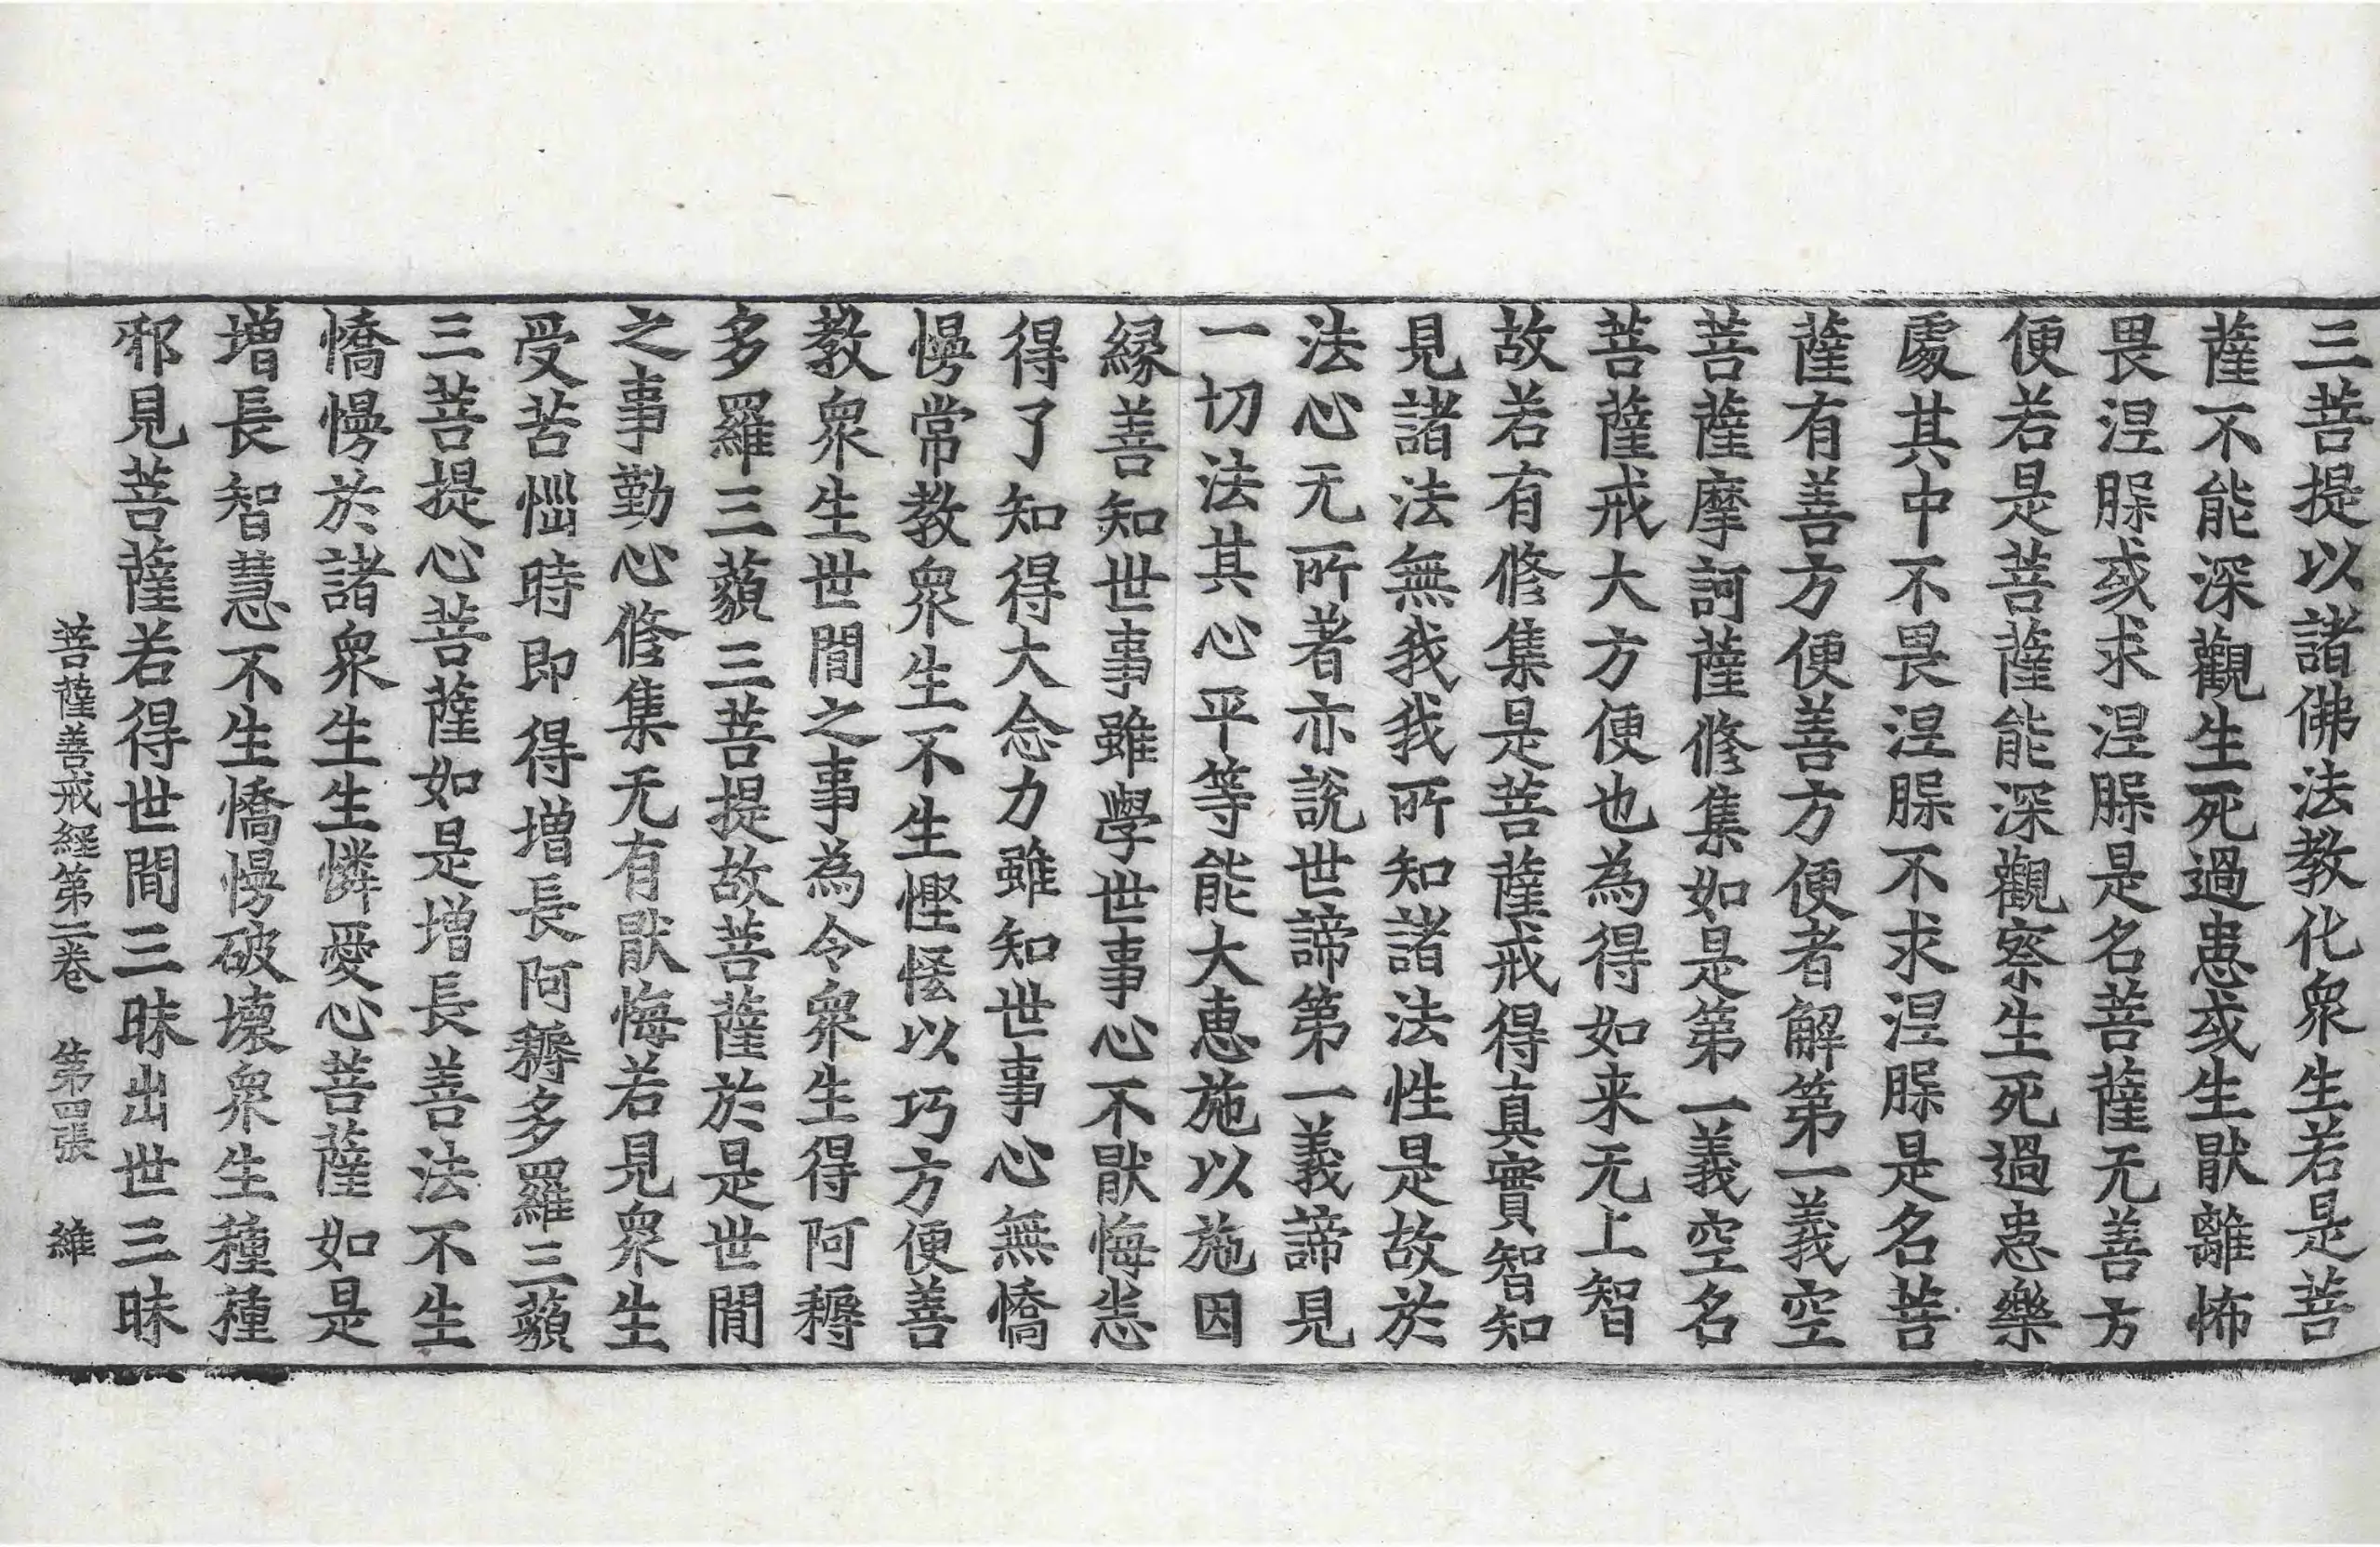 三菩提以諸佛法教化衆生若是菩
薩不能深觀生死過患或生猒離怖
畏涅槃或求涅槃是名菩薩无善方
便若是菩薩能深觀察生死過患樂
處其中不畏涅槃不求涅槃是名菩
薩有善方便善方便者解第一義空
菩薩摩訶薩修集如是第一義空名
菩薩戒大方便也為得如来无上智
故若有修集是菩薩戒得真實智知
見諸法無我我所知諸法性是故於
法心无所著亦說世諦第一義諦見
一切法其心平等能大惠施以施因
縁善知世事雖學世事心不猒悔恙
得了知得大念力雖知世事心無憍
慢常教衆生不生慳悋以巧方便善
教衆生世間之事為令衆生得阿耨
多羅三藐三菩提故菩薩於是世間
之事勤心修集无有猒悔若見衆生
受苦惱時即得增長阿耨多羅三藐
三菩提心菩薩如是增長善法不生
憍慢於諸衆生生憐愛心菩薩如是
增長智慧不生憍慢破壞衆生種種
邪見菩薩若得世間三昧出世三昧
菩薩善戒經第二卷　第四張　維